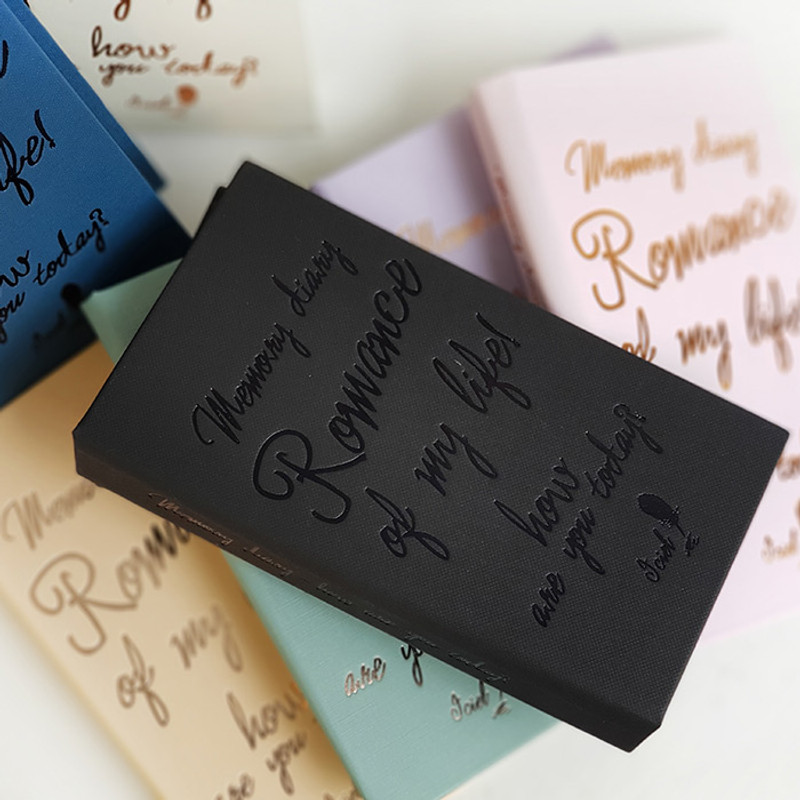 how
you today?
life!
how
you today?
Memory diary
Romance
of my life!
how
are you today?
Iciel
Memory diary how are you today
Memory diary
Romance
of my life!
Romance
of my
how
are you
are
Iciel